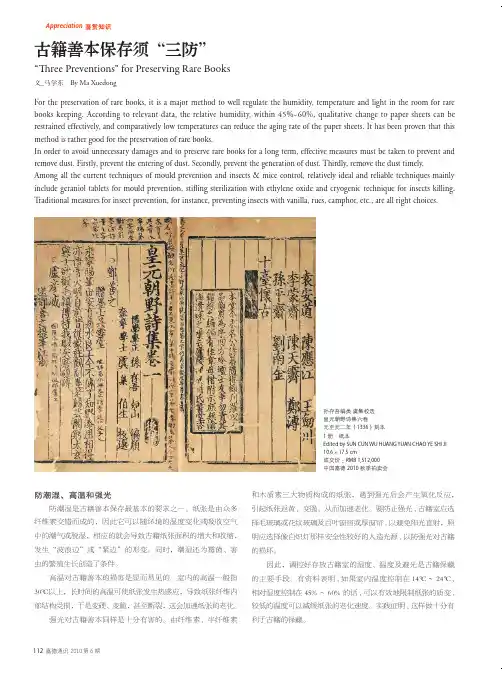 Appreciation 鉴赏知识
古籍善本保存须“三防”
“Three Preventions” for Preserving Rare Books
文_马学东 By Ma Xuedong
For the preservation of rare books, it is a major method to well regulate the humidity, temperature and light in the room for rare
books keeping. According to relevant data, the relative humidity, within 45%-60%, qualitative change to paper sheets can be
restrained effectively, and comparatively low temperatures can reduce the aging rate of the paper sheets. It has been proven that this
method is rather good for the preservation of rare books.
In order to avoid unnecessary damages and to preserve rare books for a long term, effective measures must be taken to prevent and
remove dust. Firstly, prevent the entering of dust. Secondly, prevent the generation of dust. Thirdly, remove the dust timely.
Among all the current techniques of mould prevention and insects & mice control, relatively ideal and reliable techniques mainly
include geraniol tablets for mould prevention, stifling sterilization with ethylene oxide and cryogenic technique for insects killing.
Traditional measures for insect prevention, for instance, preventing insects with vanilla, rues, camphor, etc., are all right choices.
袁安道 陳應江 王劒川
李家齋 陳天齋 鄭溥
孫半齋 劉南金
十臺懷古
皇元朝野詩集卷一
儒學學正 孫存吾 如山 編類
奎章學士 虞集 伯生 校選
鄧善之
孙存吾编类 虞集校选
皇元朝野诗集六卷
元至元二年(1336)刻本
1册 纸本
Edited by SUN CUN WU HUANG YUAN CHAO YE SHI JI
10.6 × 17.5 cm
成交价:RMB 1,512,000
中国嘉德2010秋季拍卖会
防潮湿、高温和强光
防潮湿是古籍善本保存最基本的要求之一。纸张是由众多
纤维素交错而成的,因此它可以随环境的湿度变化或吸收空气
中的潮气或散湿,相应的就会导致古籍纸张面积的增大和收缩,
发生“波浪边”或“紧边”的形变。同时,潮湿还为霉菌、害
虫的繁殖生长创造了条件。
高温对古籍善本的损毁是显而易见的,室内的高温一般指
30℃以上,长时间的高温可使纸张发生热感应,导致纸张纤维内
部结构受损,于是变硬、变脆,甚至断裂,这会加速纸张的老化。
强光对古籍善本同样是十分有害的。由纤维素、半纤维素
和木质素三大物质构成的纸张,遇到强光后会产生氧化反应,
引起纸张泛黄、变脆,从而加速老化。要防止强光,古籍室应选
择毛玻璃或花纹玻璃及百叶窗帘或厚窗帘,以避免阳光直射,照
明应选择像白炽灯那样安全性较好的人造光源,以防强光对古籍
的损坏。
因此,调控好存放古籍室的湿度、温度及避光是古籍保藏
的主要手段。有资料表明,如果室内温度控制在14℃~24℃,
相对湿度控制在45%~60%的话,可以有效地限制纸张的质变,
较低的温度可以减缓纸张的老化速度。实践证明,这样做十分有
利于古籍的保藏。
112 嘉德通讯 2010第6期